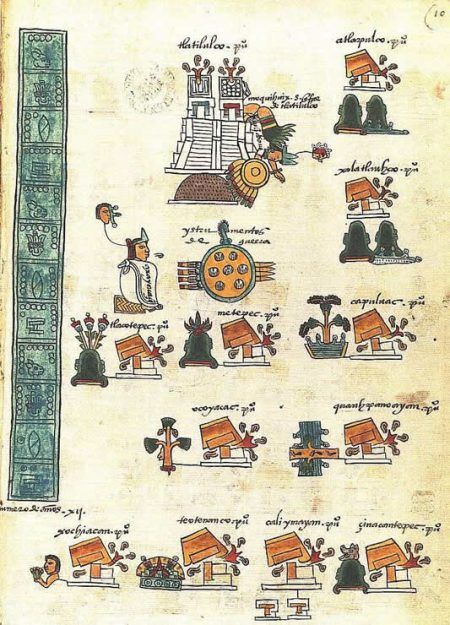 10
tlatilulco. pũ
atlapulco. pũ
moquihuix. S.
de tlatilulco
xalatlauhco. pũ
ystru mentos
de guerra
tlacotepec. pũ
metepec. pũ
capuluac. pũ
ocoyacac. pũ
quauhpanoayan. pũ
numero de años. xii.
xochiacan. pũ
teotenanco. pũ
caliymayan. pũ
çinacantepec. pũ